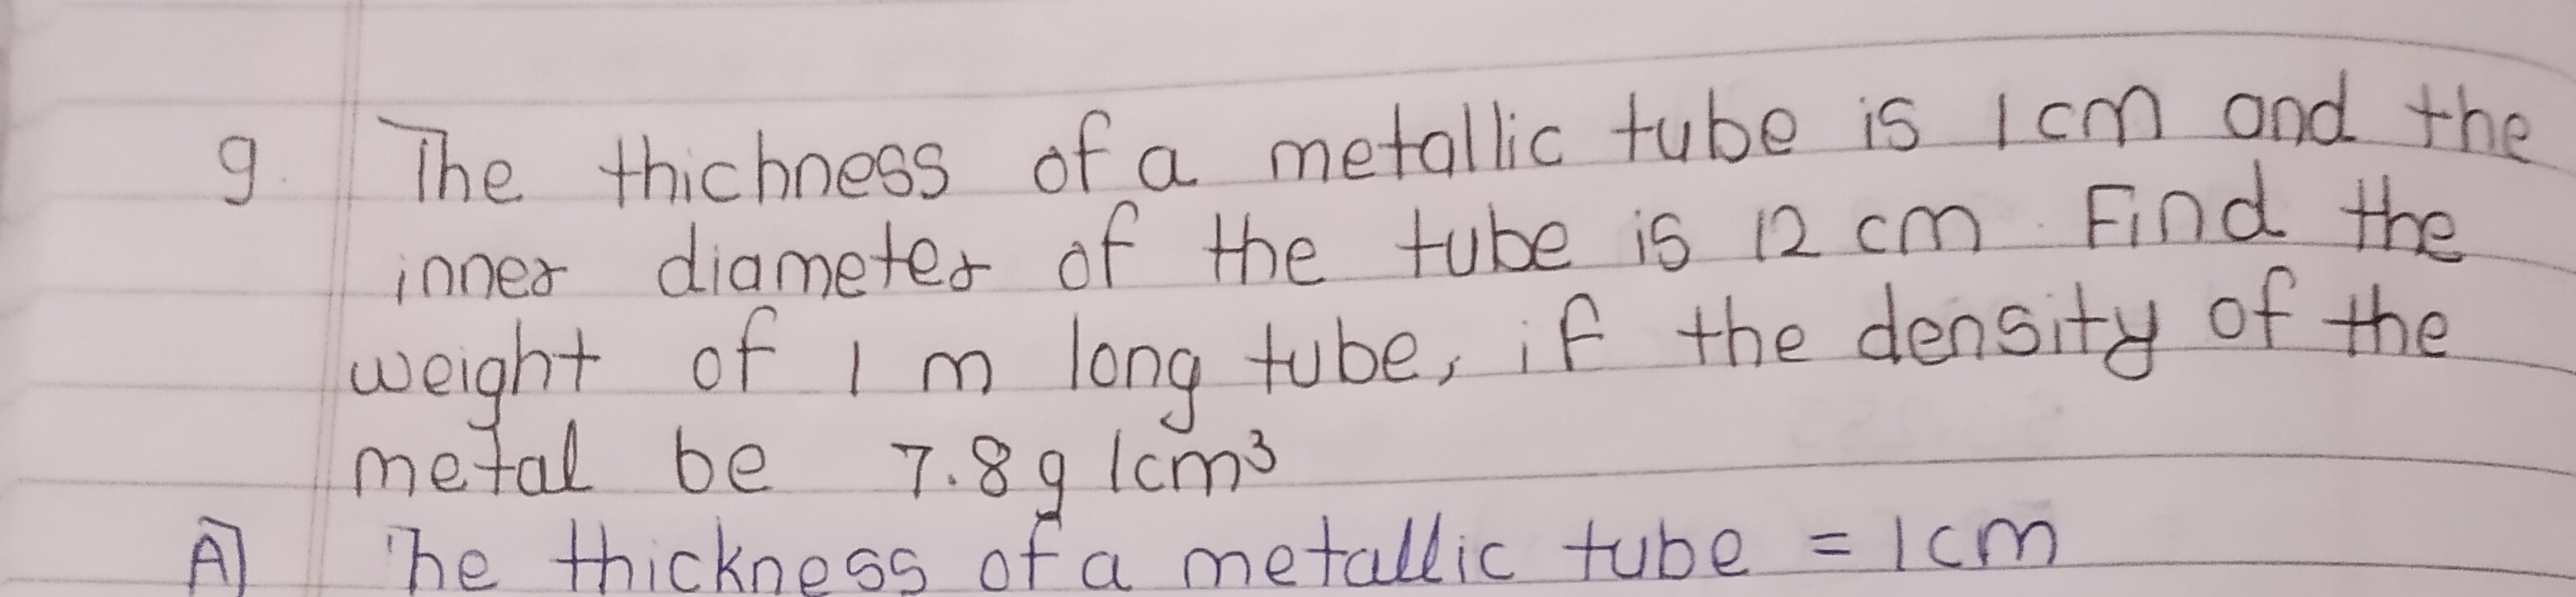 9. The thichness of a metallic tube is 1cm and the
inner diameter of the tube is 12 cm. Find the
weight of 1 m long tube, if the density of the
metal be 7.8g /cm³
A] The thickness of a metallic tube = 1cm